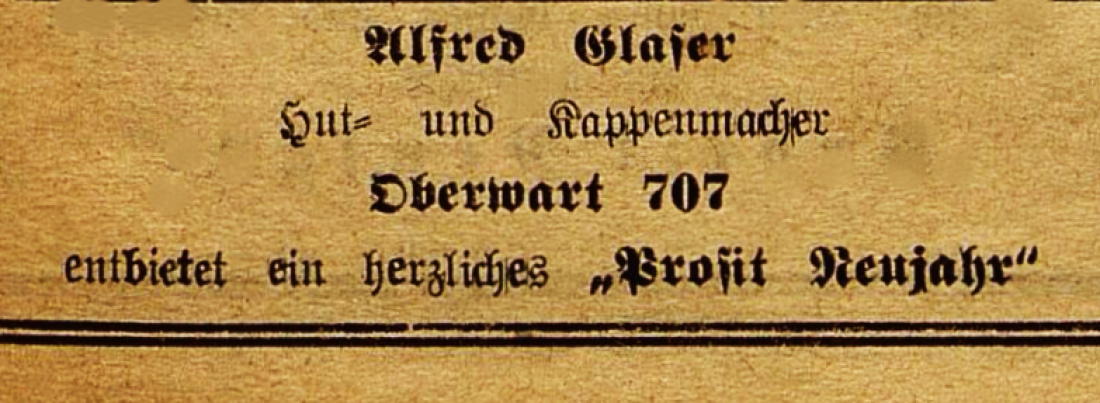 Alfred Glaser
Hut- und Kappenmacher
Oberwart 707
entbietet ein herzliches „Prosit Neujahr“